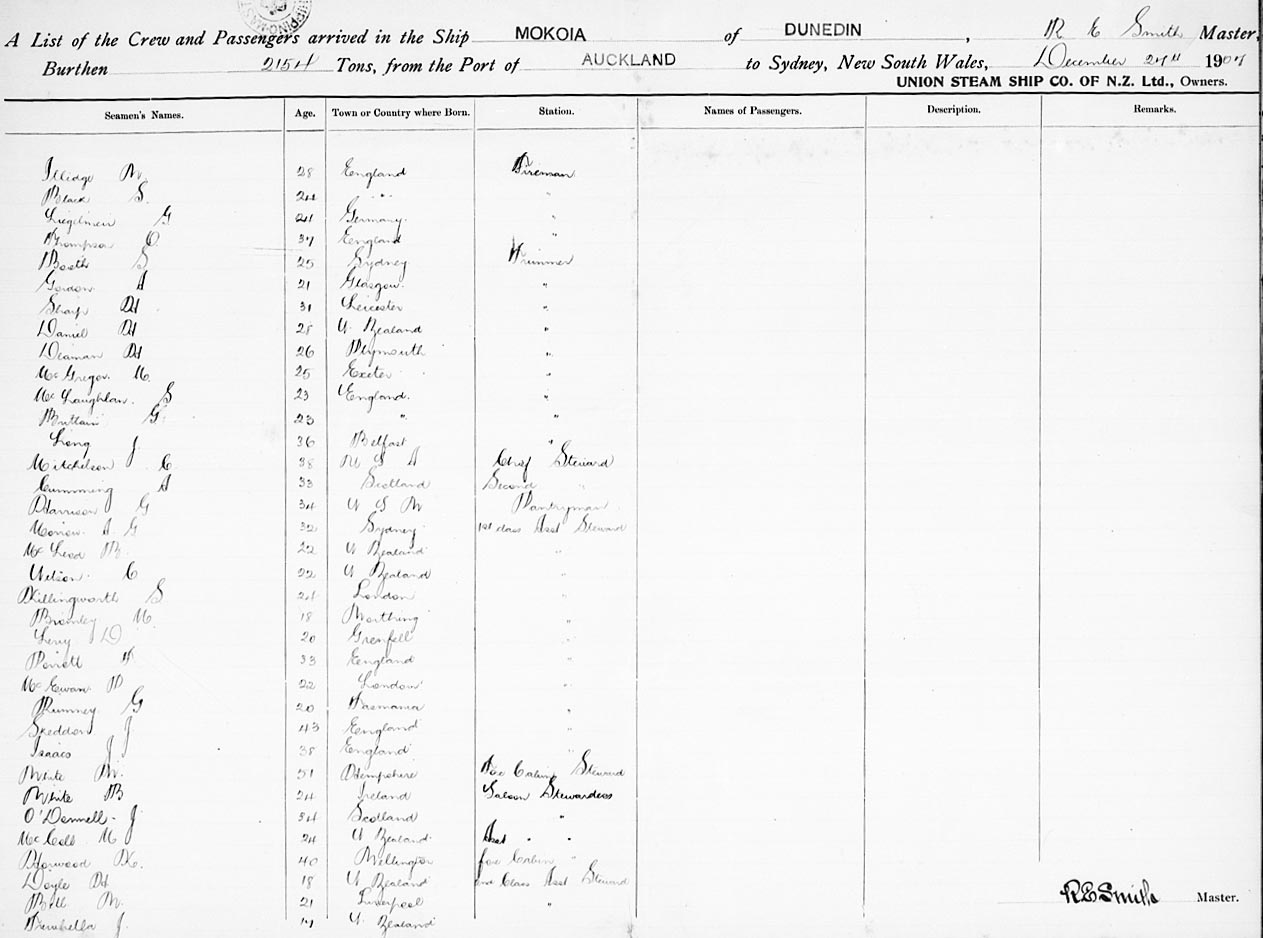 SHIPPING MAST
A List of the Crew and Passengers arrived in the Ship MOKOIA of DUNEDIN, R E Smith Master,
Burthen 2154 Tons, from the Port of AUCKLAND to Sydney, New South Wales, December 1907
UNION STEAM SHIP CO. OF N.Z. Ltd., Owners.
Seamen's Names. Age. Town or Country where Born. Station. Names of Passengers. Description. Remarks.
Illidge W. 28 England Fireman
Black S. 24 " "
G 24 Germany. "
Thompson C. 37 England "
Booth S 25 Sydney Trimmer
Gordon A 21 Glasgow. "
Sharp H 31 Leicester "
Daniel H 28 N. Zealand "
Deaman H 26 Plymouth "
McGregor M. 25 Exeter "
McLaughlan. S 23 England. "
Brittain G. 23 " "
Long J 36 Belfast "
Mitchelson C 38 U S A Chief Steward
Cumming A 33 Scotland Second "
Harrison G 34 Pantryman
A G 32 Sydney 1st class Asst Steward
McLeod B. 22 N Zealand "
Wilson. C 22 N Zealand "
Killingworth S London "
Bromley M. 18 Worthing "
D 20 Grenfell "
33 England "
McEwan. P 22 London "
Rumney. G 20 Tasmania "
Skeddon J 43 England "
Isaacs J 38 England "
White W. 51 Hampshire Fore Cabin Steward
White B 24 Ireland Saloon Stewardess
O'Donnell. J. 34 Scotland " "
McColl M 24 N Zealand. Asst " "
Horwood K. 40 Wellington fore Cabin "
Doyle H 18 N Zealand 2nd Class Asst Steward
Bell W. 21 Liverpool "
J. 19 N. Zealand
R E Smith Master.